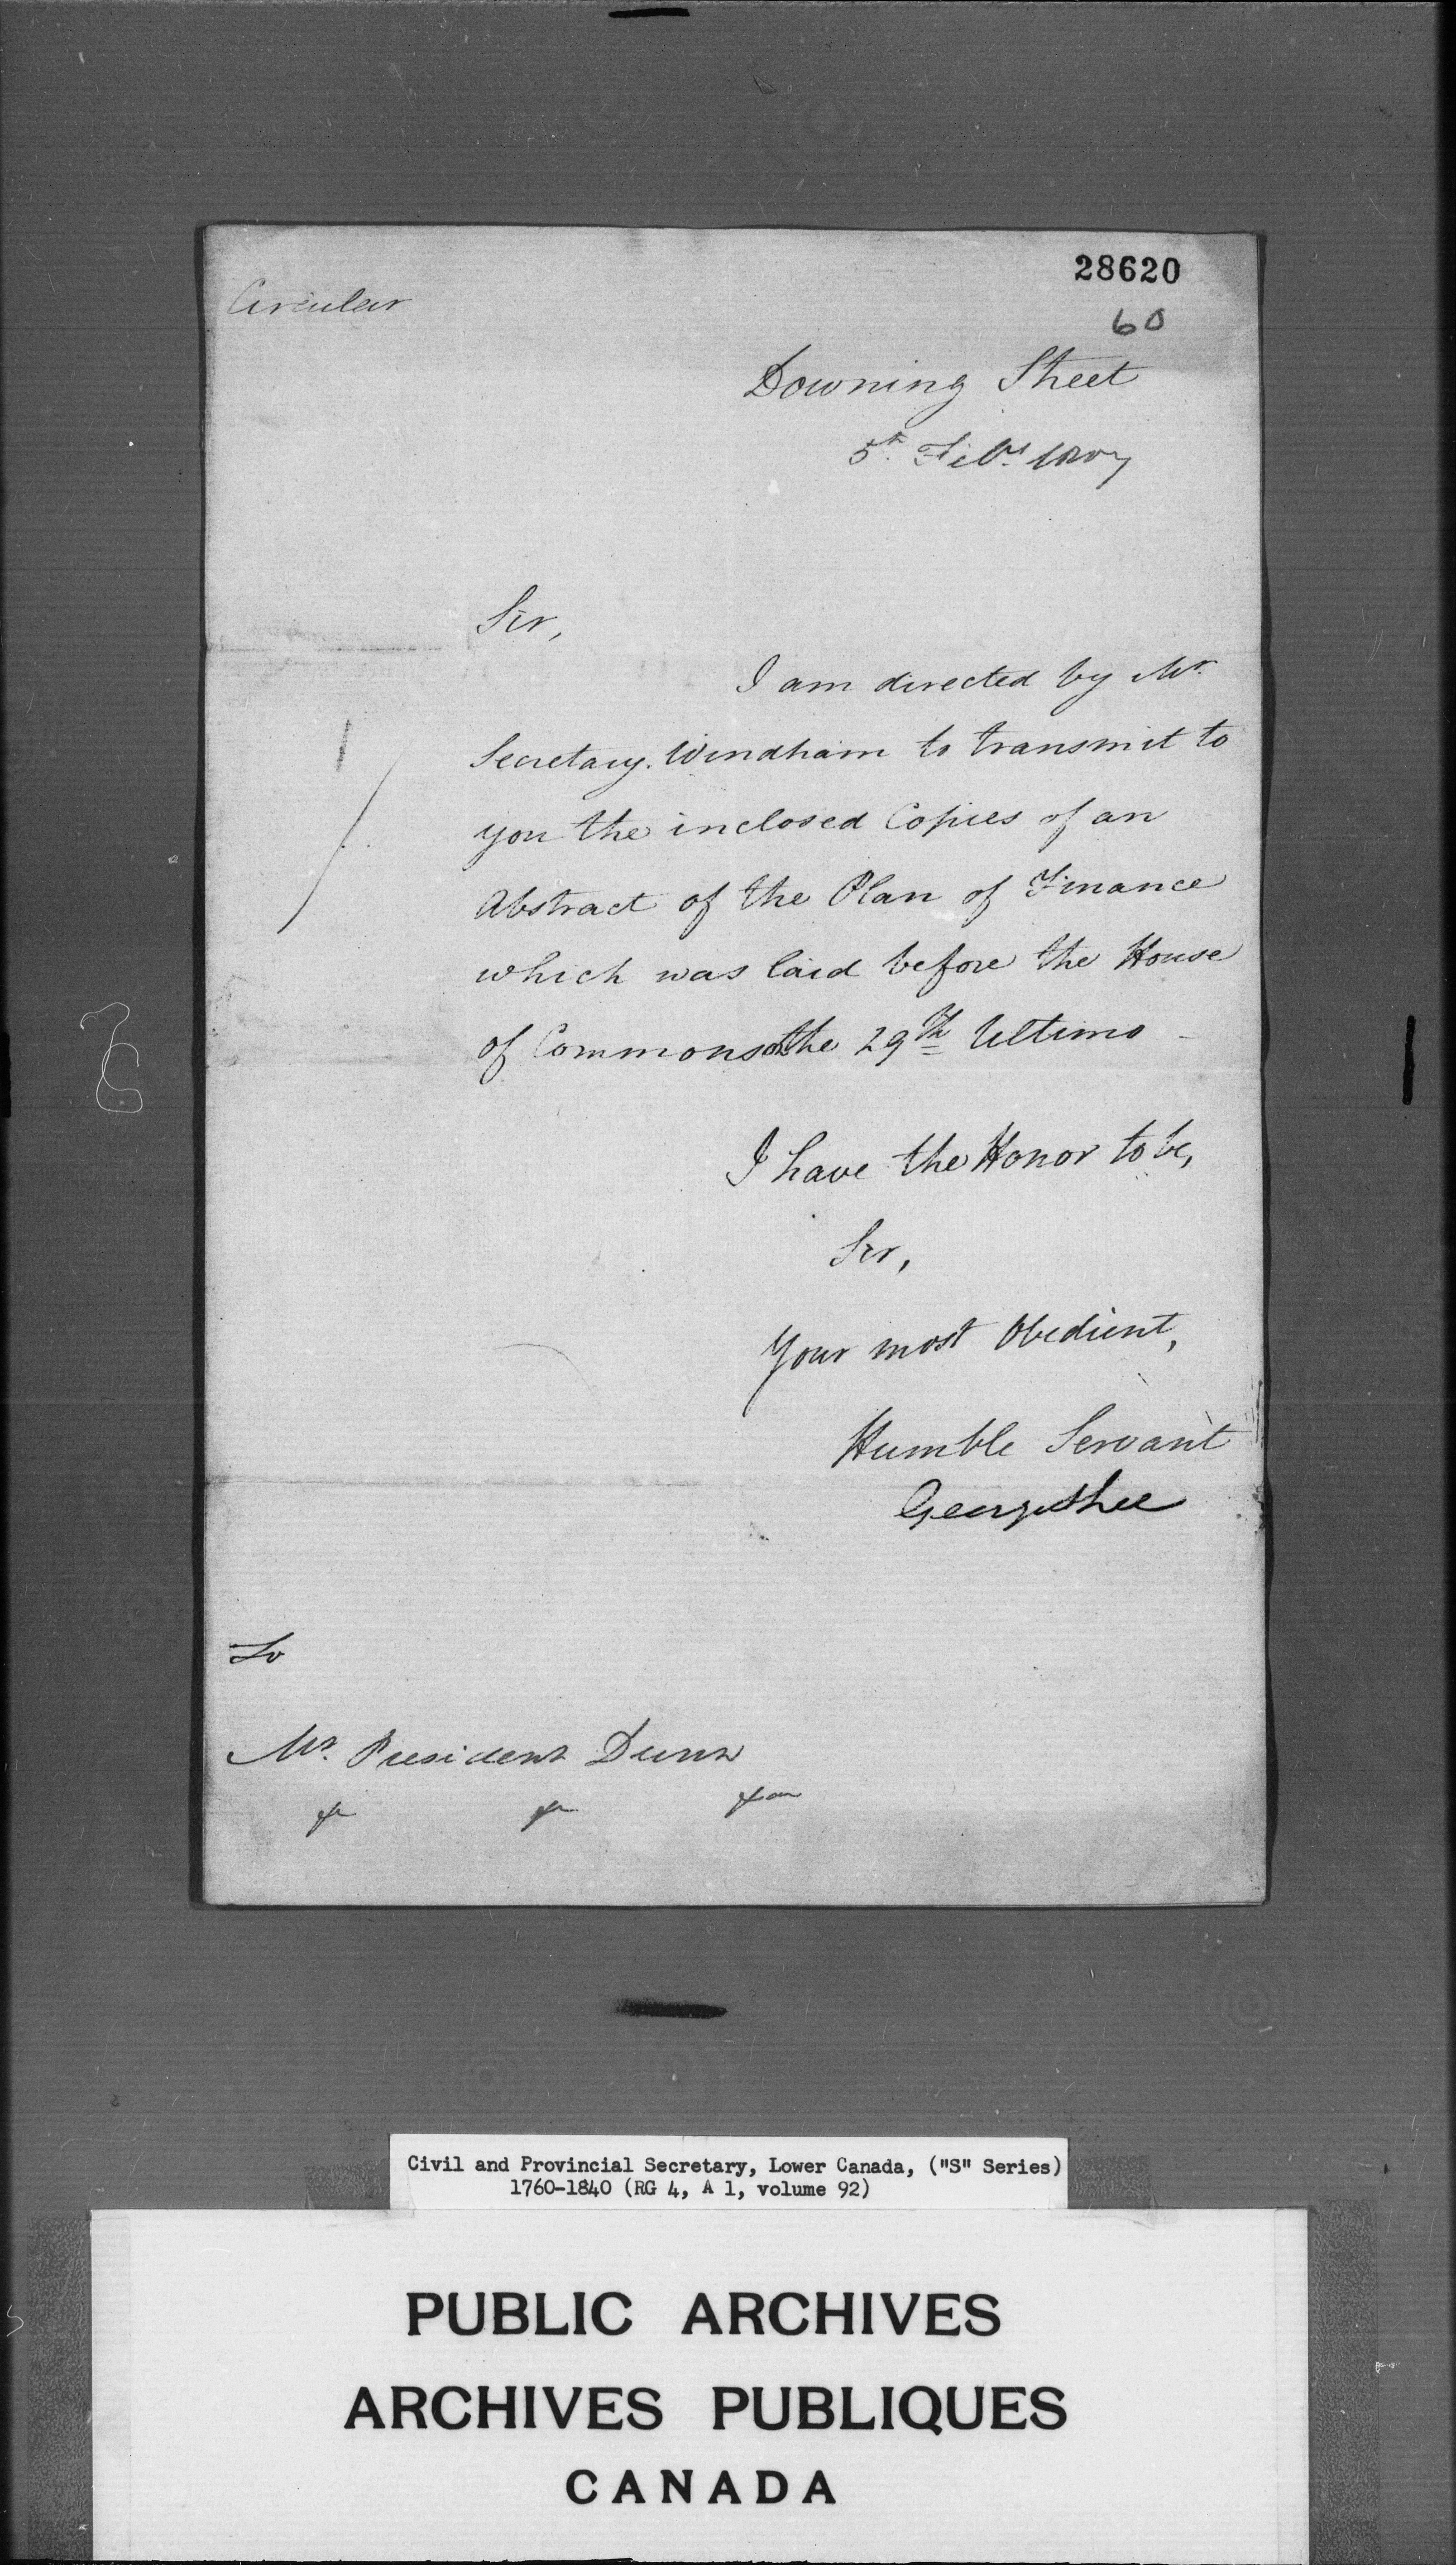 28620
Circular
60
Downing Street
5th. Feby. 1807
Sir,
I am directed by Mr.
Secretary Windham to transmit to
you the inclosed Copies of an
Abstract of the Plan of Finance
which was laid before the House
of Commons on the 29th Ultimo
I have the Honor to be,
Sir,
Your most Obedient,
Humble Servant
George Shee
To
Mr. President Dunn
&c &c &c
Civil and Provincial Secretary, Lower Canada, ("S" Series)
1760-1840 (RG 4, A 1, volume 92)
PUBLIC ARCHIVES
ARCHIVES PUBLIQUES
CANADA